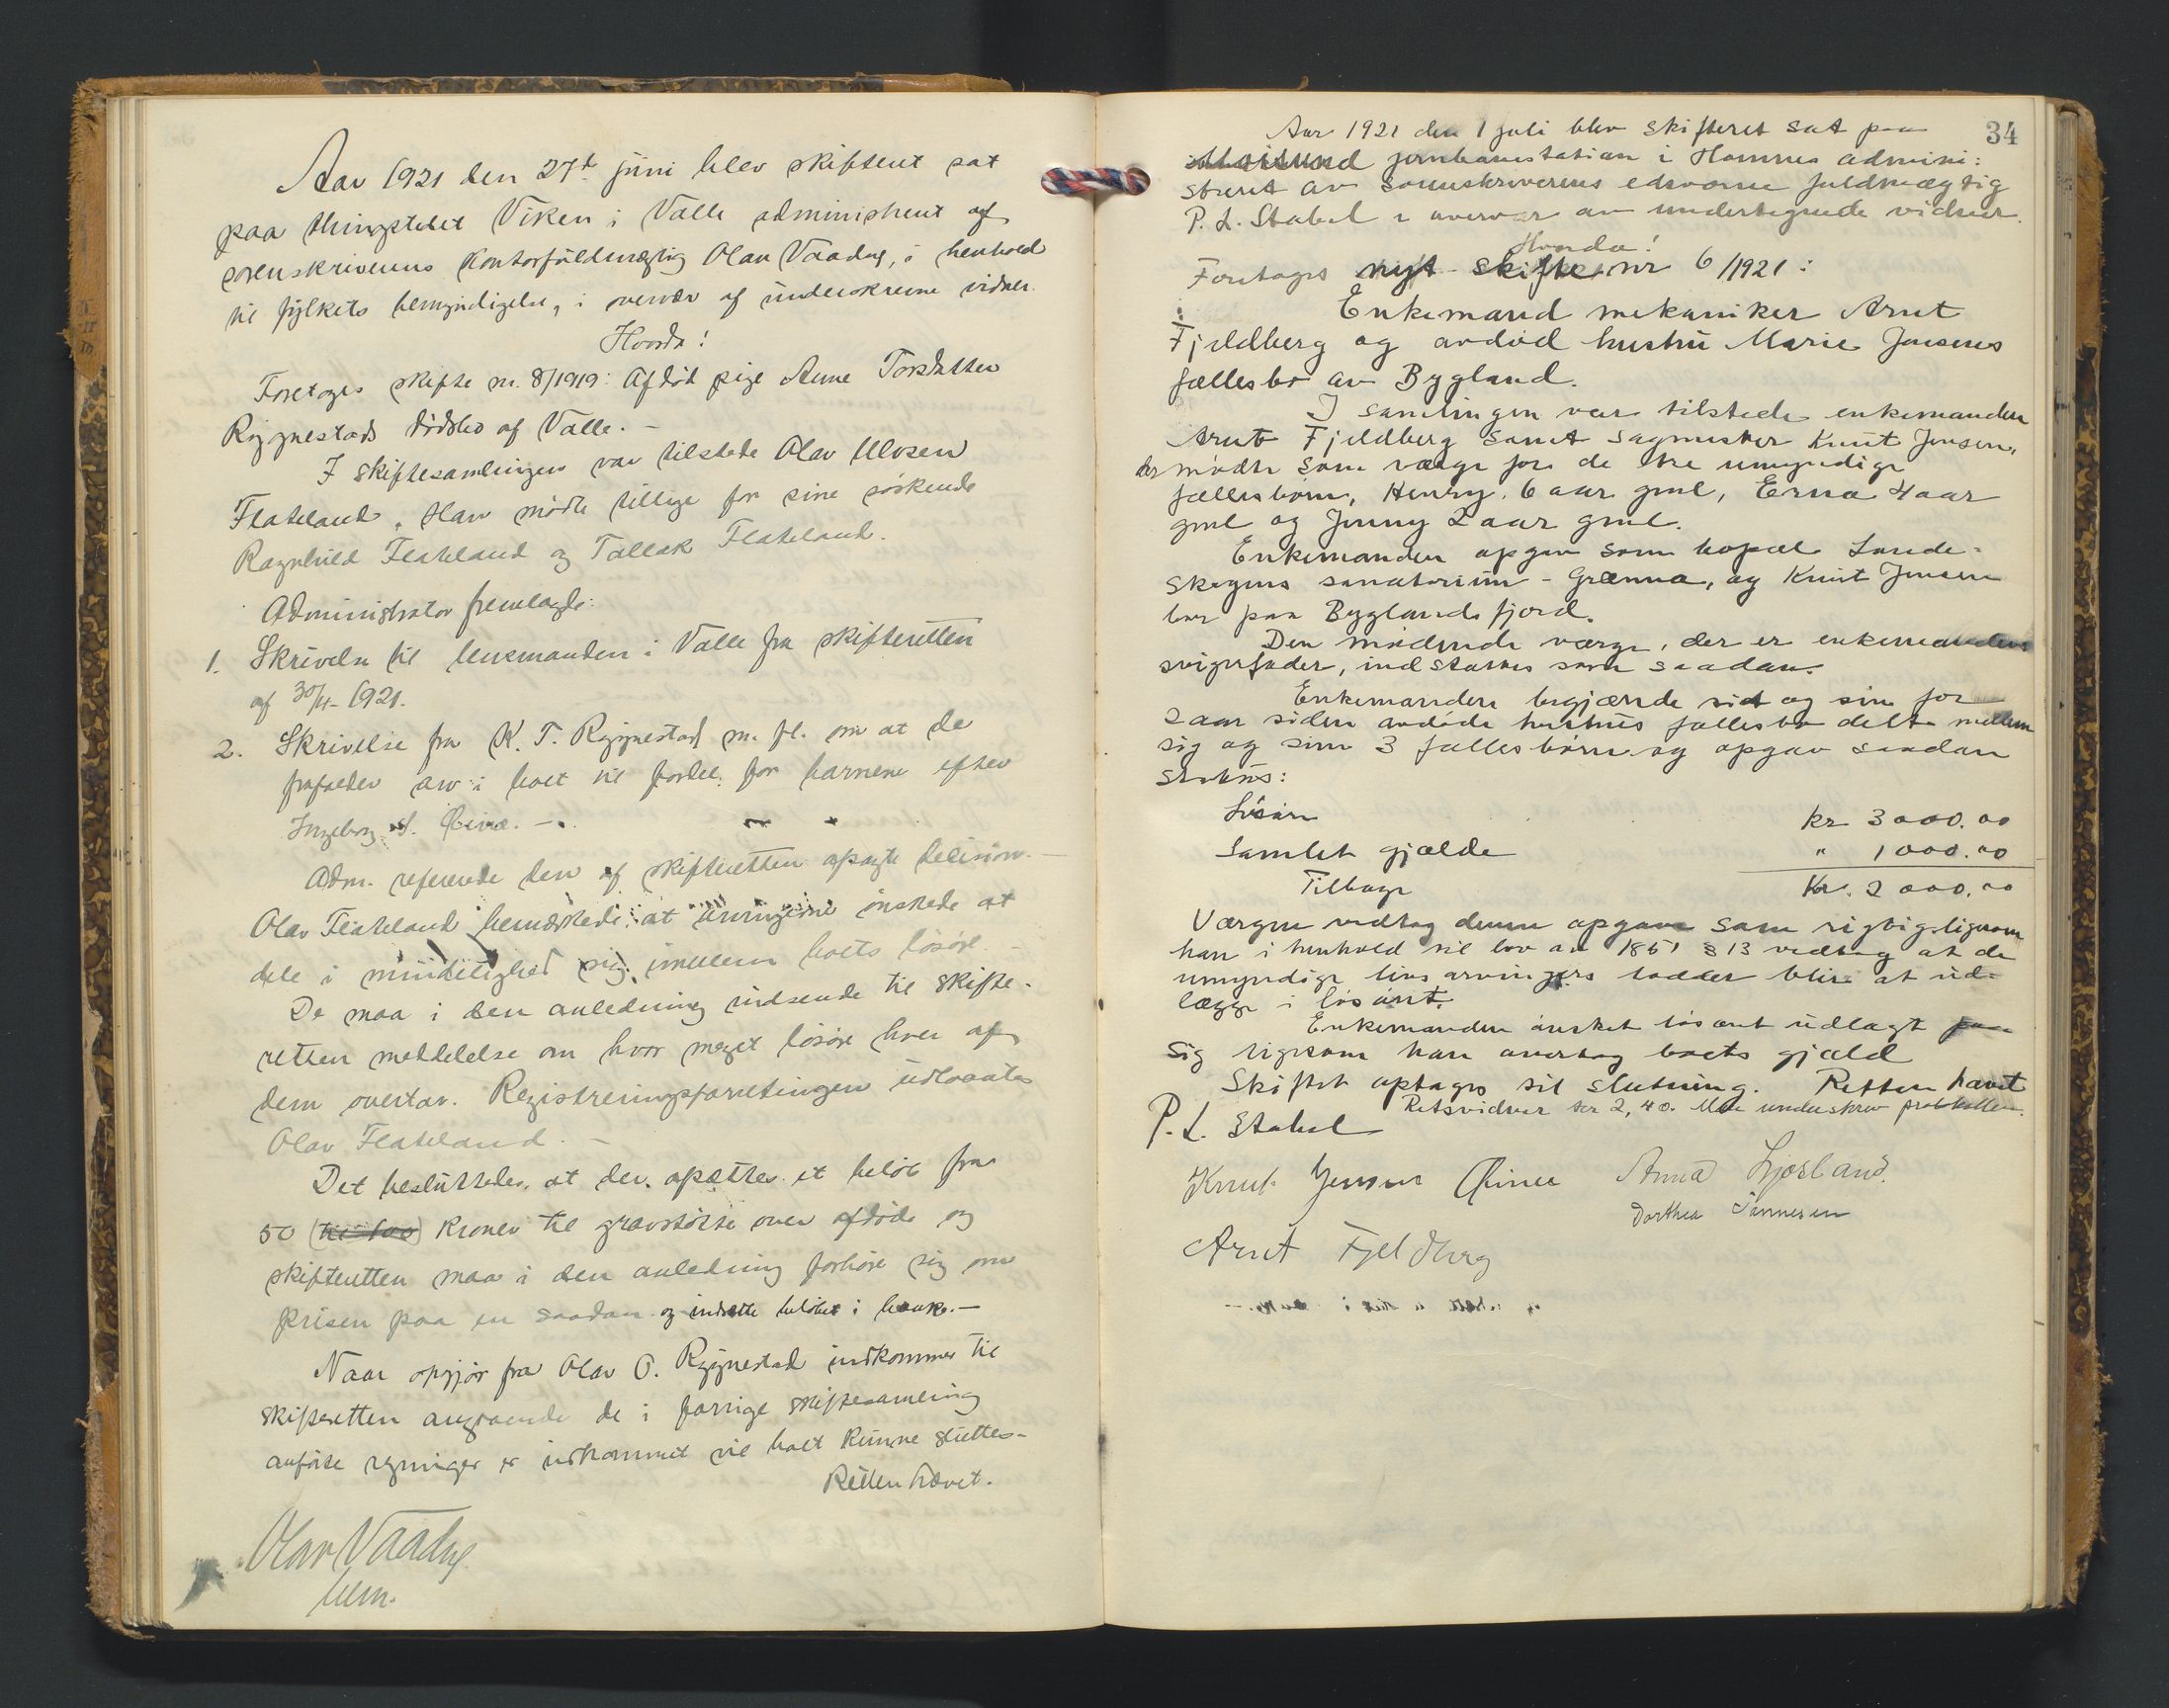 Aar 1921 den 27de juni blev skifteret sat
paa thingstedet Viken i Valle administreret af
sorenskriverens kontorfuldmægtig Olav Vaadug, i henhold
til fylkets bemyndigelse, i overvær af underskrevne vidner.
Hvorda!
Foretoges skifte nr. 8/1919: Afdöd pige Anne Torsdatter
Rygnestads dödsbo af Valle. -
I skiftesamlingen var tilstede Olav Ulvsen
Flateland. Han mödte tillige for sine söskende
Ragnhild Flateland og Tallak Flateland.
Administrator fremlagde:
1. Skrivelse til lensmanden i Valle fra skifteretten
af 30/4-1921.
2. Skrivelse fra K. T. Rygnestad m. fl. om at de
frafalder arv i boet til fordel for barnene efter
Ingeborg
Adm. refererede den af skifteretten afsagte decision. -
Olav Flateland bemærkede, at arvingerne önskede at
dele i mindelighed sig imellem boets lösöre. -
De maa i den anledning indsende til skifte-
retten meddelelse om hvor meget lösöre hver af
dem overtar. Registreringsforretningen udlaantes
Olav Flateland. -
Det besluttedes, at der afsættes et belöb fra
50 (til 100) kroner til gravstötte over afdöde og
skifteretten maa i den anledning forhöre sig om
prisen paa en saadan og indsætte belöbet i bank. -
Naar opgjör fra Olav O. Rygnestad indkommer til
skifteretten angaaende de i forrige skiftesamling
anförte regninger er indkommet vil boet kunne sluttes. -
Retten hævet.
Olav Vaadug
bem.
34
Aar 1921 den 1 juli blev skifteret sat paa
jernbanestation i Hornnes admini:
streret av sorenskriverens edsvorne fuldmægtig
P. L. Stabel i overvær av undertegnede vidner.
Hvorda!
Foretoges nyt skifte nr 6/1921:
Enkemand mekaniker Arnt
Fjeldberg og avdöd hustru Marie Jensens
fællesbo av Bygland.
I samlingen var tilstede enkemanden
Arnt Fjeldberg samt sagmester Knut Jensen,
der mödte som værge for de tre umyndige
fællesbörn, Henry 6 aar gml, Erna 4 aar
gml og Jenny 2 aar gml.
Enkemanden opgav som bopæl Lande-
skogens sanatorium - Grænna, og Knut Jensen
bor paa Byglandsfjord.
Den mödende værge, der er enkemandens
svigerfader, indstattes som saadan.
Enkemanden begjærde sit og sin for
2 aar siden avdöde hustrus fællesbo delt mellem
sig og sine 3 fællesbörn og opgav saadan
status:
Lösöre kr 3000.00
Samlet gjæld " 1000.00
Tilbage Kr. 2000.00
Værgen vedtog denne opgave som rigtig ligesom
han i henhold til lov av 1851 § 13 vedtog at de
umyndige livsarvingers lodder blir at ud-
lægge i lösöret.
Enkemanden önsket lösöret udlagt paa
sig ligesom han overtog boets gjæld
Skiftet optages til slutning. Retten hævet
Retsvidner kr 2,40. Alle underskrev protokollen.
P. L. Stabel
Knut Jensen Anna Ljosland.
Dorthea Tönnesen
Arnt Fjeldberg